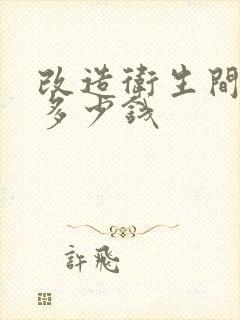 改造衛生間
多少錢
許飛